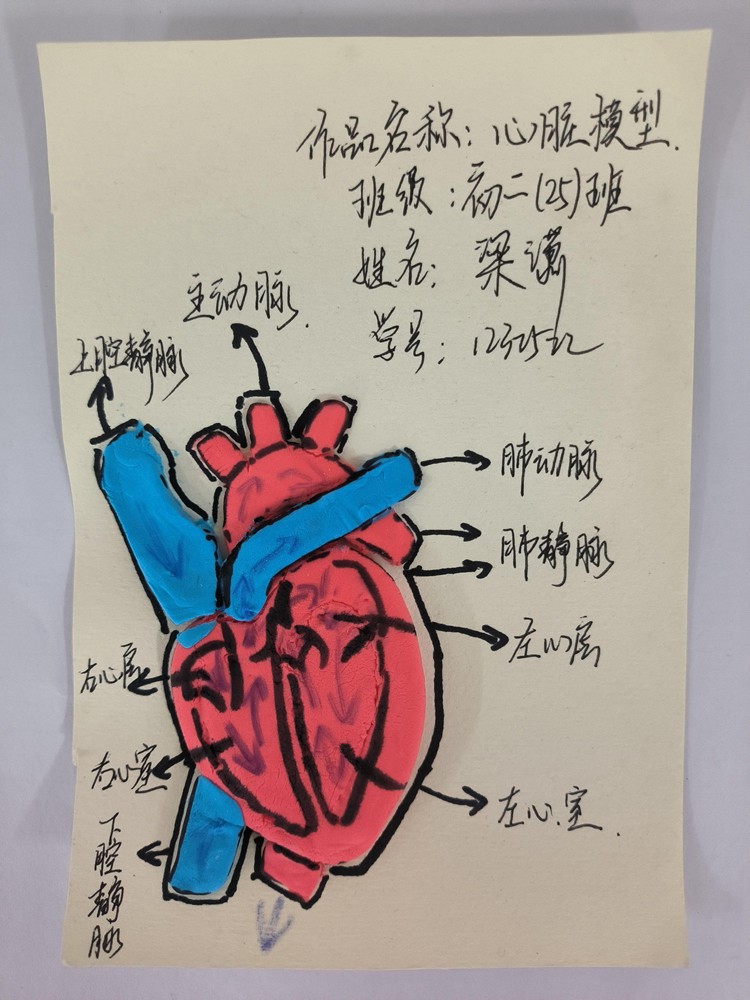 作品名称：心脏模型.
班级：初二(25)班
姓名：梁潇
学号：
主动脉.
上腔静脉
肺动脉
肺静脉
左心房
右心房
右心室
左心室.
下腔静脉